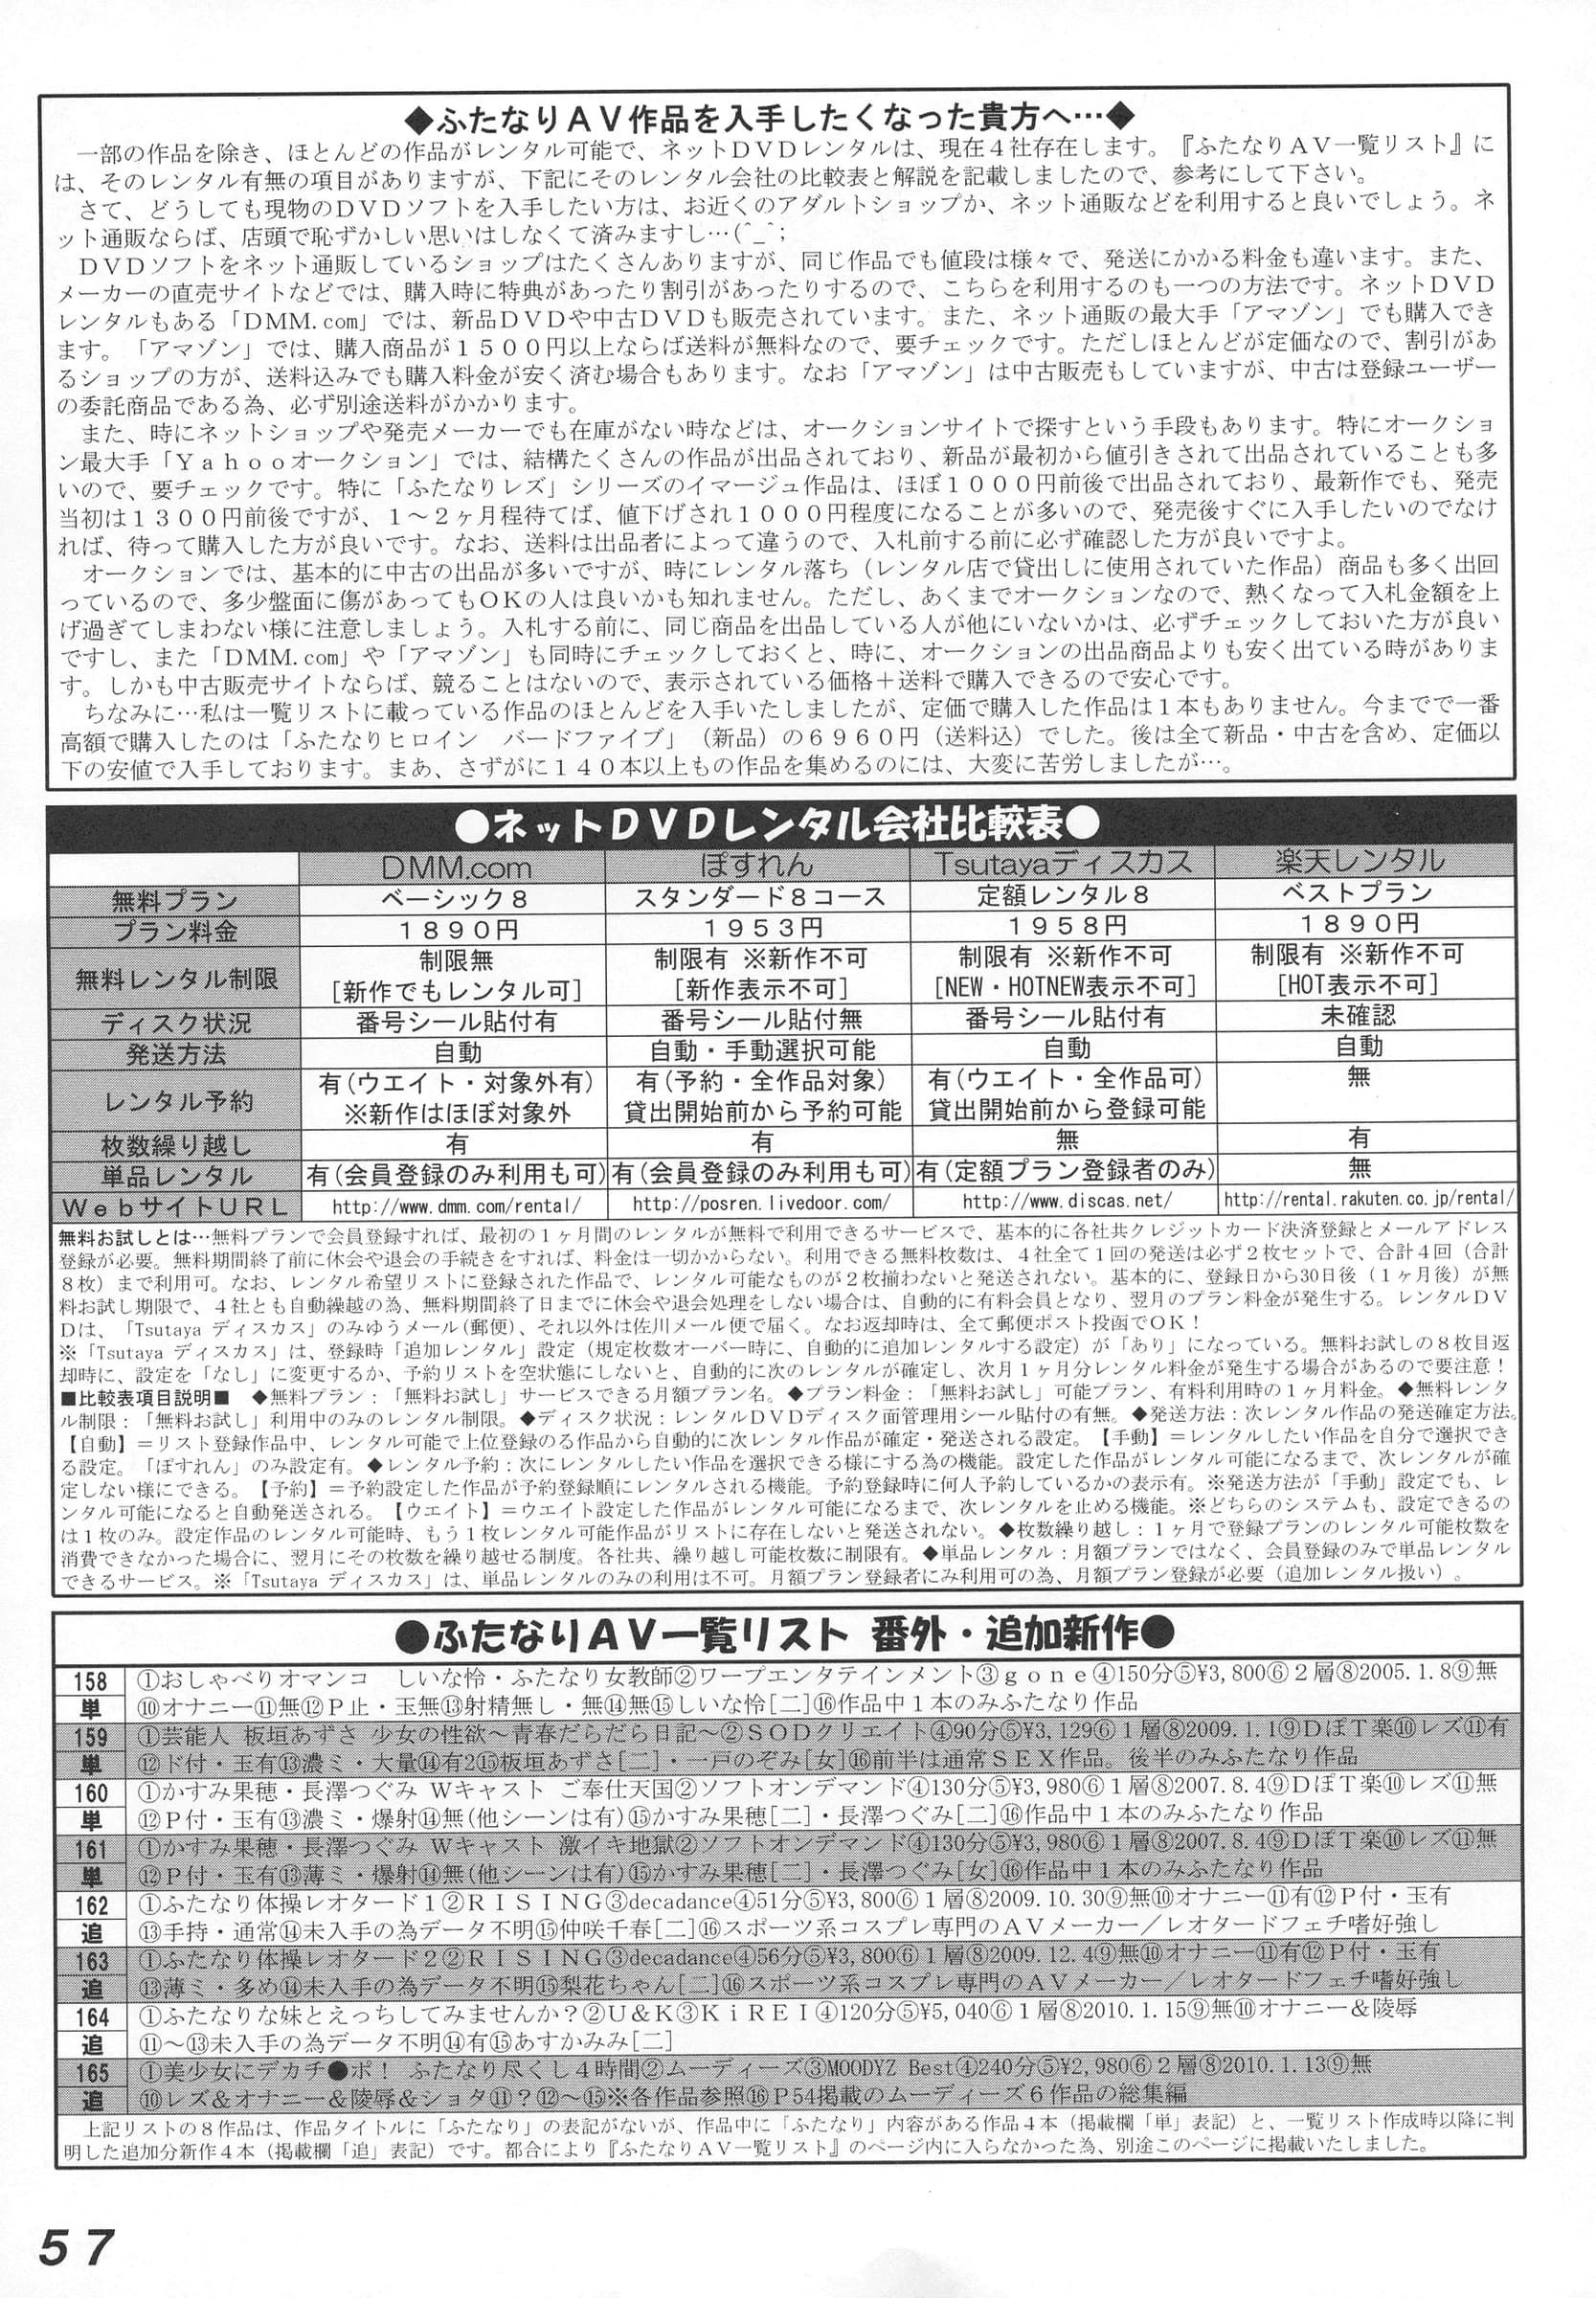 ◆ふたなりＡＶ作品を入手したくなった貴方へ…◆
一部の作品を除き、ほとんどの作品がレンタル可能で、ネットＤＶＤレンタルは、現在４社存在します。『ふたなりＡＶ一覧リスト』に
は、そのレンタル有無の項目がありますが、下記にそのレンタル会社の比較表と解説を記載しましたので、参考にして下さい。
さて、どうしても現物のＤＶＤソフトを入手したい方は、お近くのアダルトショップか、ネット通販などを利用すると良いでしょう。ネ
ット通販ならば、店頭で恥ずかしい思いはしなくて済みますし…(^_^;
ＤＶＤソフトをネット通販しているショップはたくさんありますが、同じ作品でも値段は様々で、発送にかかる料金も違います。また、
メーカーの直売サイトなどでは、購入時に特典があったり割引があったりするので、こちらを利用するのも一つの方法です。ネットＤＶＤ
レンタルもある「DMM.com」では、新品ＤＶＤや中古ＤＶＤも販売されています。また、ネット通販の最大手「アマゾン」でも購入でき
ます。「アマゾン」では、購入商品が１５００円以上ならば送料が無料なので、要チェックです。ただしほとんどが定価なので、割引があ
るショップの方が、送料込みでも購入料金が安く済む場合もあります。なお「アマゾン」は中古販売もしていますが、中古は登録ユーザー
の委託商品である為、必ず別途送料がかかります。
また、時にネットショップや発売メーカーでも在庫がない時などは、オークションサイトで探すという手段もあります。特にオークショ
ン最大手「Ｙａｈｏｏオークション」では、結構たくさんの作品が出品されており、新品が最初から値引きされて出品されていることも多
いので、要チェックです。特に「ふたなりレズ」シリーズのイマージュ作品は、ほぼ１０００円前後で出品されており、最新作でも、発売
当初は１３００円前後ですが、１～２ヶ月程待てば、値下げされ１０００円程度になることが多いので、発売後すぐに入手したいのでなけ
れば、待って購入した方が良いです。なお、送料は出品者によって違うので、入札前する前に必ず確認した方が良いですよ。
オークションでは、基本的に中古の出品が多いですが、時にレンタル落ち（レンタル店で貸出しに使用されていた作品）商品も多く出回
っているので、多少盤面に傷があってもＯＫの人は良いかも知れません。ただし、あくまでオークションなので、熱くなって入札金額を上
げ過ぎてしまわない様に注意しましょう。入札する前に、同じ商品を出品している人が他にいないかは、必ずチェックしておいた方が良い
ですし、また「DMM.com」や「アマゾン」も同時にチェックしておくと、時に、オークションの出品商品よりも安く出ている時がありま
す。しかも中古販売サイトならば、競ることはないので、表示されている価格＋送料で購入できるので安心です。
ちなみに…私は一覧リストに載っている作品のほとんどを入手いたしましたが、定価で購入した作品は１本もありません。今までで一番
高額で購入したのは「ふたなりヒロイン　バードファイブ」（新品）の６９６０円（送料込）でした。後は全て新品・中古を含め、定価以
下の安値で入手しております。まあ、さずがに１４０本以上もの作品を集めるのには、大変に苦労しましたが…。
●ネットＤＶＤレンタル会社比較表●
DMM.com ぽすれん Tsutayaディスカス 楽天レンタル
無料プラン ベーシック８ スタンダード８コース 定額レンタル８ ベストプラン
プラン料金 １８９０円 １９５３円 １９５８円 １８９０円
無料レンタル制限 制限無 制限有 ※新作不可 制限有 ※新作不可 制限有 ※新作不可
[新作でもレンタル可] [新作表示不可] [NEW・HOTNEW表示不可] [HOT表示不可]
ディスク状況 番号シール貼付有 番号シール貼付無 番号シール貼付有 未確認
発送方法 自動 自動・手動選択可能 自動 自動
レンタル予約 有(ウエイト・対象外有) 有(予約・全作品対象) 有(ウエイト・全作品可) 無
※新作はほぼ対象外 貸出開始前から予約可能 貸出開始前から登録可能
枚数繰り越し 有 有 無 有
単品レンタル 有(会員登録のみ利用も可) 有(会員登録のみ利用も可) 有(定額プラン登録者のみ) 無
ＷｅｂサイトＵＲＬ http://www.dmm.com/rental/ http://posren.livedoor.com/ http://www.discas.net/ http://rental.rakuten.co.jp/rental/
無料お試しとは…無料プランで会員登録すれば、最初の１ヶ月間のレンタルが無料で利用できるサービスで、基本的に各社共クレジットカード決済登録とメールアドレス
登録が必要。無料期間終了前に休会や退会の手続きをすれば、料金は一切かからない。利用できる無料枚数は、４社全て１回の発送は必ず２枚セットで、合計４回（合計
８枚）まで利用可。なお、レンタル希望リストに登録された作品で、レンタル可能なものが２枚揃わないと発送されない。基本的に、登録日から30日後（１ヶ月後）が無
料お試し期限で、４社とも自動繰越の為、無料期間終了日までに休会や退会処理をしない場合は、自動的に有料会員となり、翌月のプラン料金が発生する。レンタルＤＶ
Ｄは、「Tsutaya ディスカス」のみゆうメール(郵便)、それ以外は佐川メール便で届く。なお返却時は、全て郵便ポスト投函でＯＫ！
※「Tsutaya ディスカス」は、登録時「追加レンタル」設定（規定枚数オーバー時に、自動的に追加レンタルする設定）が「あり」になっている。無料お試しの８枚目返
却時に、設定を「なし」に変更するか、予約リストを空状態にしないと、自動的に次のレンタルが確定し、次月１ヶ月分レンタル料金が発生する場合があるので要注意！
■比較表項目説明■　◆無料プラン：「無料お試し」サービスできる月額プラン名。◆プラン料金：「無料お試し」可能プラン、有料利用時の１ヶ月料金。◆無料レンタ
ル制限：「無料お試し」利用中のみのレンタル制限。◆ディスク状況：レンタルＤＶＤディスク面管理用シール貼付の有無。◆発送方法：次レンタル作品の発送確定方法。
【自動】＝リスト登録作品中、レンタル可能で上位登録のる作品から自動的に次レンタル作品が確定・発送される設定。【手動】＝レンタルしたい作品を自分で選択でき
る設定。「ぽすれん」のみ設定有。◆レンタル予約：次にレンタルしたい作品を選択できる様にする為の機能。設定した作品がレンタル可能になるまで、次レンタルが確
定しない様にできる。【予約】＝予約設定した作品が予約登録順にレンタルされる機能。予約登録時に何人予約しているかの表示有。※発送方法が「手動」設定でも、レ
ンタル可能になると自動発送される。【ウエイト】＝ウエイト設定した作品がレンタル可能になるまで、次レンタルを止める機能。※どちらのシステムも、設定できるの
は１枚のみ。設定作品のレンタル可能時、もう１枚レンタル可能作品がリストに存在しないと発送されない。◆枚数繰り越し：１ヶ月で登録プランのレンタル可能枚数を
消費できなかった場合に、翌月にその枚数を繰り越せる制度。各社共、繰り越し可能枚数に制限有。◆単品レンタル：月額プランではなく、会員登録のみで単品レンタル
できるサービス。※「Tsutaya ディスカス」は、単品レンタルのみの利用は不可。月額プラン登録者にみ利用可の為、月額プラン登録が必要（追加レンタル扱い）。
●ふたなりＡＶ一覧リスト 番外・追加新作●
158 ①おしゃべりオマンコ　しいな怜・ふたなり女教師②ワープエンタテインメント③ｇｏｎｅ④150分⑤¥3,800⑥２層⑧2005.1.8⑨無
単 ⑩オナニー⑪無⑫Ｐ止・玉無⑬射精無し・無⑭無⑮しいな怜[二]⑯作品中１本のみふたなり作品
159 ①芸能人 板垣あずさ 少女の性欲～青春だらだら日記～②ＳＯＤクリエイト④90分⑤¥3,129⑥１層⑧2009.1.1⑨ＤぽＴ楽⑩レズ⑪有
単 ⑫ド付・玉有⑬濃ミ・大量⑭有2⑮板垣あずさ[二]・一戸のぞみ[女]⑯前半は通常ＳＥＸ作品。後半のみふたなり作品
160 ①かすみ果穂・長澤つぐみ Ｗキャスト ご奉仕天国②ソフトオンデマンド④130分⑤¥3,980⑥１層⑧2007.8.4⑨ＤぽＴ楽⑩レズ⑪無
単 ⑫Ｐ付・玉有⑬濃ミ・爆射⑭無(他シーンは有)⑮かすみ果穂[二]・長澤つぐみ[二]⑯作品中１本のみふたなり作品
161 ①かすみ果穂・長澤つぐみ Ｗキャスト 激イキ地獄②ソフトオンデマンド④130分⑤¥3,980⑥１層⑧2007.8.4⑨ＤぽＴ楽⑩レズ⑪無
単 ⑫Ｐ付・玉有⑬薄ミ・爆射⑭無(他シーンは有)⑮かすみ果穂[二]・長澤つぐみ[女]⑯作品中１本のみふたなり作品
162 ①ふたなり体操レオタード１②ＲＩＳＩＮＧ③decadance④51分⑤¥3,800⑥１層⑧2009.10.30⑨無⑩オナニー⑪有⑫Ｐ付・玉有
追 ⑬手持・通常⑭未入手の為データ不明⑮仲咲千春[二]⑯スポーツ系コスプレ専門のＡＶメーカー／レオタードフェチ嗜好強し
163 ①ふたなり体操レオタード２②ＲＩＳＩＮＧ③decadance④56分⑤¥3,800⑥１層⑧2009.12.4⑨無⑩オナニー⑪有⑫Ｐ付・玉有
追 ⑬薄ミ・多め⑭未入手の為データ不明⑮梨花ちゃん[二]⑯スポーツ系コスプレ専門のＡＶメーカー／レオタードフェチ嗜好強し
164 ①ふたなりな妹とえっちしてみませんか？②Ｕ＆Ｋ③ＫｉＲＥＩ④120分⑤¥5,040⑥１層⑧2010.1.15⑨無⑩オナニー＆陵辱
追 ⑪～⑬未入手の為データ不明⑭有⑮あすかみみ[二]
165 ①美少女にデカチ●ポ！ ふたなり尽くし４時間②ムーディーズ③MOODYZ Best④240分⑤¥2,980⑥２層⑧2010.1.13⑨無
追 ⑩レズ＆オナニー＆陵辱＆ショタ⑪？⑫～⑮※各作品参照⑯Ｐ54掲載のムーディーズ６作品の総集編
上記リストの８作品は、作品タイトルに「ふたなり」の表記がないが、作品中に「ふたなり」内容がある作品４本（掲載欄「単」表記）と、一覧リスト作成時以降に判
明した追加分新作４本（掲載欄「追」表記）です。都合により『ふたなりＡＶ一覧リスト』のページ内に入らなかった為、別途このページに掲載いたしました。
57